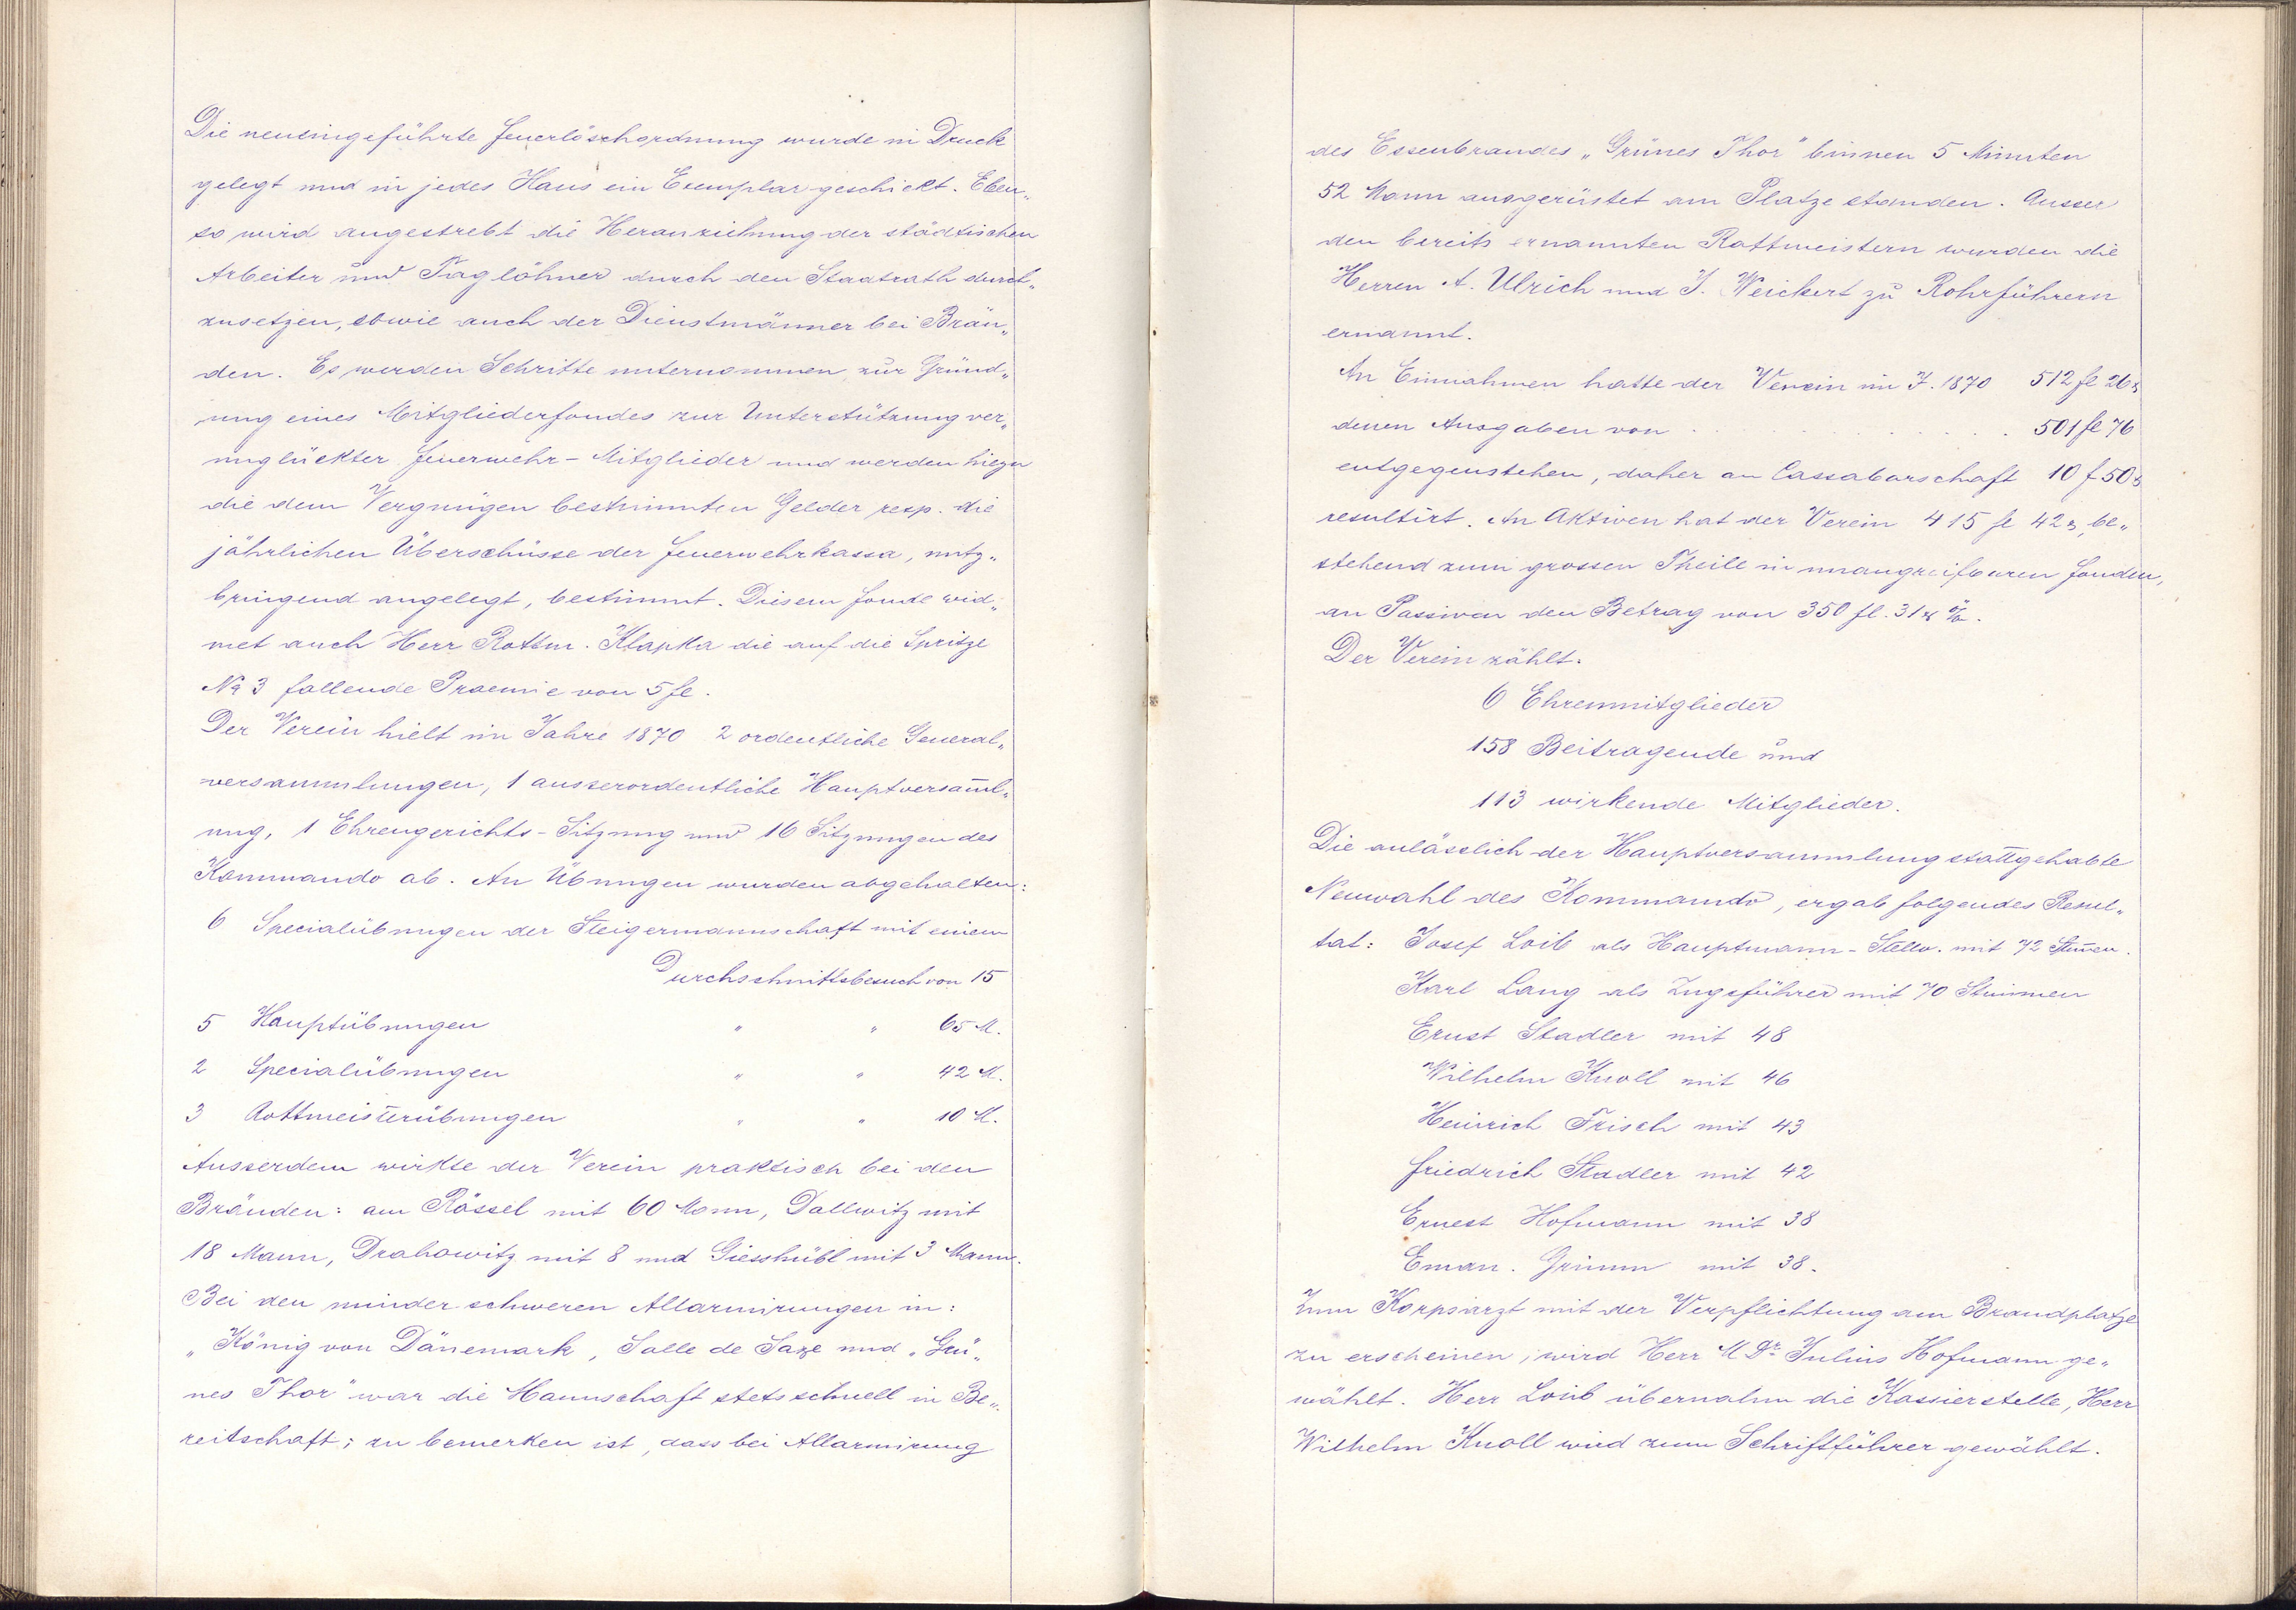 Die neueingeführte Feuerlöschordnung wurde in Druck
gelegt und in jedes Haus ein Exemplar geschickt. Eben„
so wird angestrebt die Heranziehung der städtischen
Arbeiter und Taglöhner durch den Stadtrath durch„
zusetzen, sowie auch der Dienstmänner bei Brän„
den. Es werden Schritte unternommen zur Gründ„
ung eines Mitgliederfondes zur Unterstützung ver„
unglückter Feuerwehr-Mitglieder und werden hiezu
die dem Vergnügen bestimmten Gelder resp. die
jährlichen Überschüsse der Feuerwehrkassa, nutz„
bringend angelegt, bestimmt. Diesem Fonde wid„
met auch Herr Rottm. Klapka die auf die Spritze
No 3 fallende Praemie von 5 fl.
Der Verein hielt im Jahre 1870 2 ordentliche General„
versammlungen, 1 ausserordentliche Hauptversam̄l„
ung, 1 Ehrengerichts-Sitzung und 16 Sitzungen des
Kommando ab. An Übungen wurden abgehalten:
6 Specialübungen der Steigermannschaft mit einem
Durchschnittsbesuch von 15
5 Hauptübungen " " 65 M.
2 Specialübungen " " 42 M.
3 Rottmeisterübungen " " 10 M.
Ausserdem wirkte der Verein praktisch bei den
Bränden: am Rössel mit 60 Mann, Dallwitz mit
18 Mann, Drahowitz mit 8 und Giesshübl mit 3 Mann.
Bei den minder schweren Allarmirungen in:
„König von Dänemark, Salle de Saxe und „Grü„
nes Thor" war die Mannschaft stets schnell in Be„
reitschaft; zu bemerken ist, dass bei Allarmirung
des Essenbrandes „Grünes Thor" binnen 5 Minuten
52 Mann ausgerüstet am Platze standen. Ausser
den bereits ernannten Rottmeistern wurden die
Herren A. Ulrich und J. Weickert zu Rohrführern
ernannt.
An Einnahmen hatte der Verein im J. 1870 512 fl 26
denen Ausgaben von . . . . . 501 fl 76
entgegenstehen, daher an Cassabarschaft 10 f 50
resultirt. An Aktiven hat der Verein 415 fl 42, be„
stehend zum grossen Theile in unangreifbaren Fonden,
an Passiven den Betrag von 350 fl. 31
Der Verein zählt:
6 Ehrenmitglieder
158 Beitragende und
113 wirkende Mitglieder.
Die anlässlich der Hauptversammlung stattgehabte
Neuwahl des Kommando, ergab folgendes Resul„
tat: Josef Loib als Hauptmann-Stellv. mit 72 Stim̄en.
Karl Lang als Zugsführer mit 70 Stimmen
Ernst Stadler mit 48
Wilhelm Knoll mit 46
Heinrich Frisch mit 43
Friedrich Stadler mit 42
Ernest Hofmann mit 38
Eman. Grimm mit 38.
Zum Korpsarzt mit der Verpflichtung am Brandplatze
zu erscheinen, wird Herr M Dr. Julius Hofmann ge„
wählt. Herr Loib übernahm die Kassierstelle, Herr
Wilhelm Knoll wird zum Schriftführer gewählt.